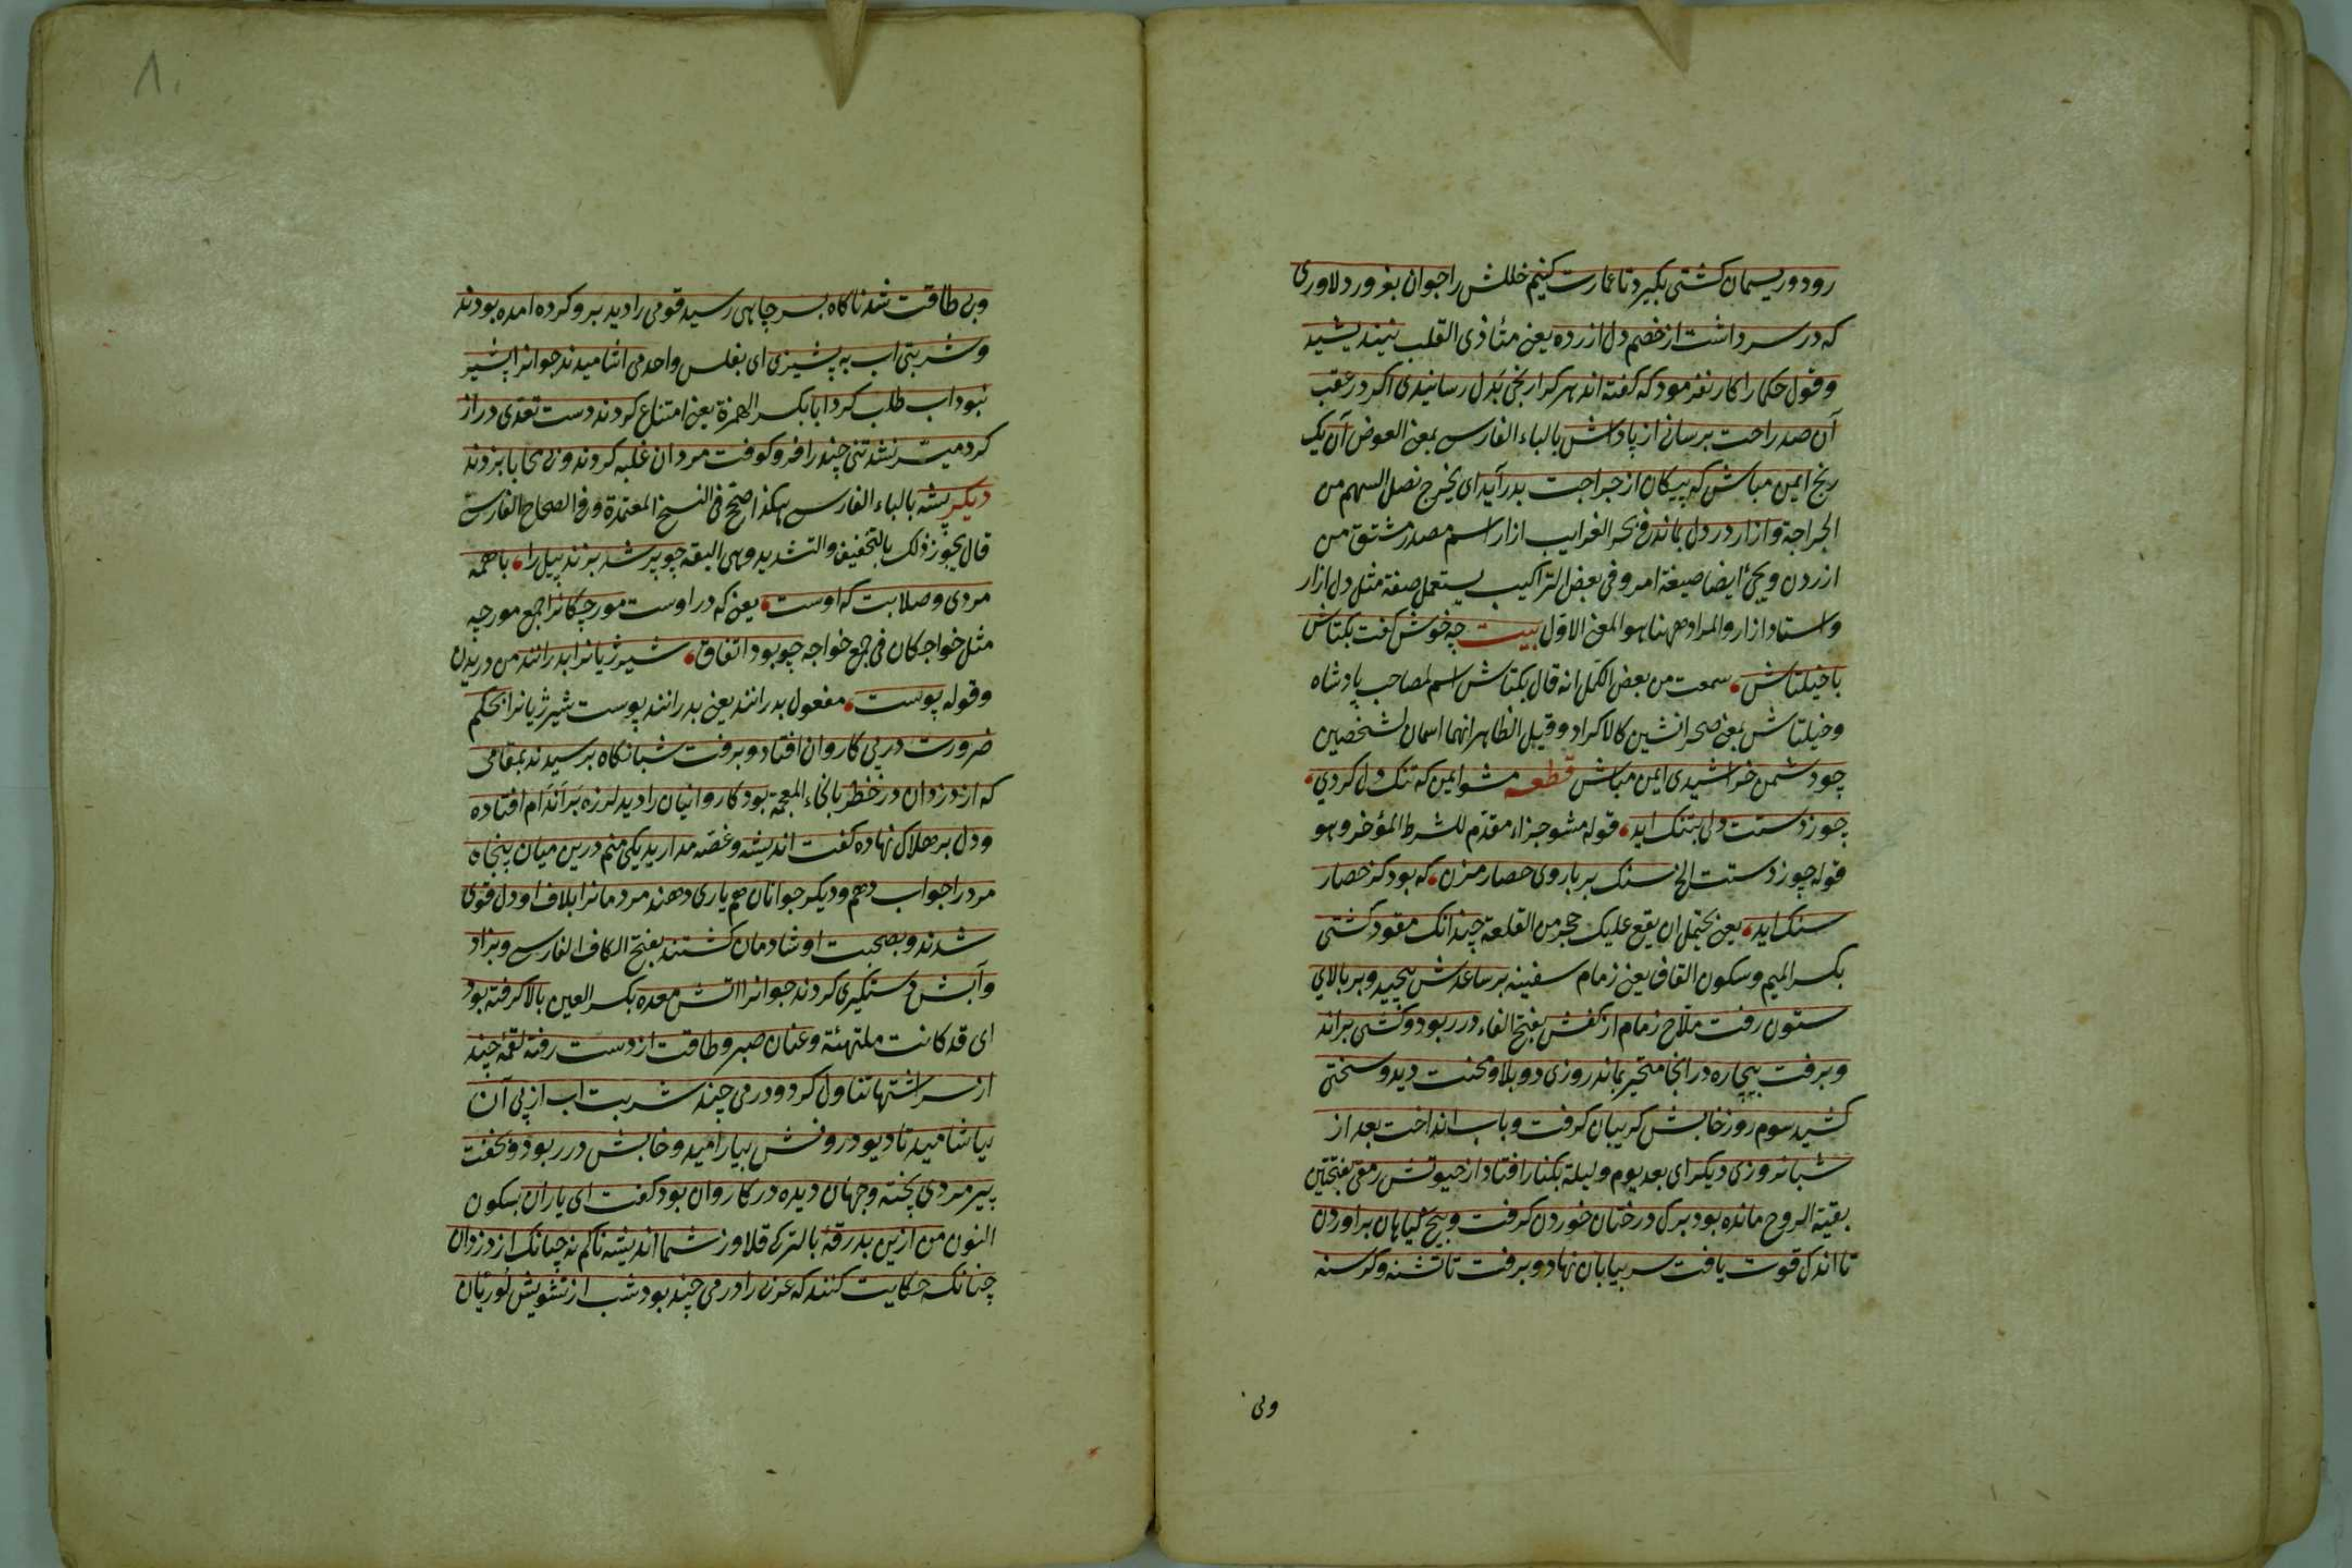 رود و ریسمان کشتی بکیرد تا عمارت کنیم خللش را جوان بغرور دلاوری
که در سر داشت از خصم دل ازرده یعنی متأذی القلب نیندیشید
و قول حکما را کار نفرمود که کفته اند هر کرا رنجی بدل رسانیدی اکر در عقب
آن صد راحت برسانی از پاداش بالباء الفارسی بمعنی العوض آن یک
رنج ایمن مباش که پیکان از جراحت بدر آید ای یخرج نصل السهم من
الجراحة و ازار در دل بماند فی بحر الغرایب ازار اسم مصدر مشتق من
ازردن ویجئ ایضا صیغة امر وفی بعض التراکیب یستعمل صفة مثل دل ازار
و استاد ازار والمراد ههنا هو المعنی الاول بیت چه خوش کفت بکتاش
با خیلتاش سمعت من بعض الکمل انه قال بکتاش اسم لمصاحب پادشاه
و خیلتاش بمعنی صحرانشین کالاکراد و قیل الظاهر انهما اسمان لشخصین
چو دشمن خراشیدی ایمن مباش قطعه مشو ایمن که تنک دل کردی
چون ز دستت دلی بتنک اید قوله مشو جزاء مقدم للشرط المؤخر وهو
قوله چون ز دستت الخ سنک بر باروی حصار مزن که بود کز حصار
سنک اید یعنی یحتمل ان یقع علیک حجر من القلعة چندانک مقود کشتی
بکسر المیم وسکون القاف یعنی زمام سفینه بر ساعدش پیچید و بر بالای
ستون رفت ملاح زمام از کفش بفتح الفاء در ربود و کشتی براند
و برفت بیچاره در انجا متحیر بماند روزی دو بلا و محنت دید و سختی
کشید سوم روز خابش کریبان کرفت و باب انداخت بعد از
شبانروزی دیکر ای بعد یوم ولیلة بکنار افتاد از حیوتش رمقی بفتحتین
بقیة الروح مانده بود برک درختان خوردن کرفت و بیخ کیاهان براوردن
تا اندک قوت یافت سر بیابان نهاد و برفت تا تشنه و کرسنه
وبی
وبی طاقت شد ناکاه بسر چاهی رسید قومی را دید برو کرده امده بودند
و شربتی اب به پشیزی ای بفلس واحد می اشامیدند جوانرا پشیز
نبود اب طلب کرد ابا بکسر الهمزة یعنی امتناع کردند دست تعدی دراز
کرد میسر نشد تنی چند را فرو کوفت مردان غلبه کردند و بی محابا بزدند
دیکر پشه بالباء الفارسی هکذا صحح فی النسخ المعتمدة وفی الصحاح الفارسیة
قال یجوز ذلک بالتخفیف والتشدید وهی البقه چو پر شد بزند پیل را با همه
مردی و صلابت که اوست یعنی که در اوست مورچکانرا جمع مورچه
مثل خواجکان فی جمع خواجه چو بود اتفاق شیر ژیانرا بدرانند من دریدن
وقوله پوست مفعول بدرانند یعنی بدرانند پوست شیر ژیانرا بحکم
ضرورت در پی کاروان افتاد و برفت شبانکاه برسیدند بمقامی
که از دزدان در خطر بالخاء المعجمة بود کاروانیان را دید لرزه بر اندام افتاده
و دل بر هلاک نهاده کفت اندیشه و غصه مدارید یکی منم درین میان پنجاه
مرد را جواب دهم و دیکر جوانان هم یاری دهند مردمانرا بلاف او دل قوی
شدند و بصحبت او شادمان کشتند بفتح الکاف الفارسی و بزاد
و آبش دستکیری کردند جوانرا اتش معده بکسر العین بالا کرفته بود
ای قد کانت ملتهبة و عنان صبر و طاقت از دست رفته لقمه چند
از سر اشتها تناول کرد و دمی چند شربت اب از پی آن
بیاشامید تا دیو درونش بیارامید و خابش در ربود و بخفت
پیر مردی پخته و جهان دیده در کاروان بود کفت ای یاران بسکون
النون من ازین بدرقهٔ بالترکی قلاوز شما اندیشه ناکم نه چنانک از دزدان
چنانکه حکایت کنند که عربی را درمی چند بود شب از تشویش لوریان